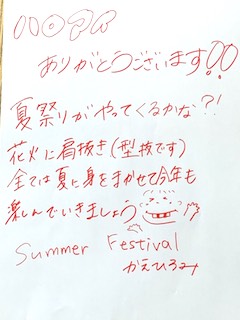 ありがとうございます!!
夏祭りがやってくるかな?!
花火に肩抜き(型抜です)
全ては夏に身をまかせて今年も
楽しんでいきましょう
Summer Festival
かえひろみ